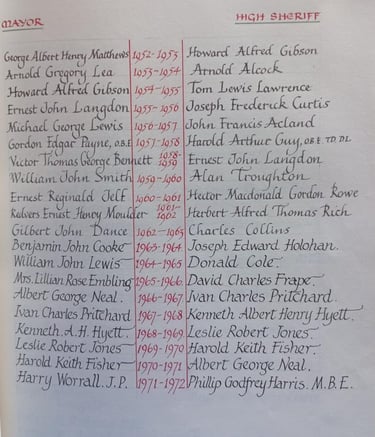 MAYOR HIGH SHERIFF
George Albert Henry Matthews 1952-1953 Howard Alfred Gibson
Arnold Gregory Lea 1953-1954 Arnold Alcock
Howard Alfred Gibson 1954-1955 Tom Lewis Lawrence
Ernest John Langdon 1955-1956 Joseph Frederick Curtis
Michael George Lewis 1956-1957 John Francis Acland
Gordon Edgar Payne, O.B.E. 1957-1958 Harold Arthur Guy, O.B.E. T.D. D.L.
Victor Thomas George Bennett 1958-1959 Ernest John Langdon
William John Smith 1959-1960 Alan Troughton
Ernest Reginald Jelf 1960-1961 Hector Macdonald Gordon Rowe
Redvers Ernest Henry Moulder 1961-1962 Herbert Alfred Thomas Rich
Gilbert John Dance 1962-1963 Charles Collins
Benjamin John Cooke 1963-1964 Joseph Edward Holohan.
William John Lewis 1964-1965 Donald Cole.
Mrs. Lillian Rose Embling 1965-1966 David Charles Frape.
Albert George Neal. 1966-1967 Ivan Charles Pritchard.
Ivan Charles Pritchard 1967-1968 Kenneth Albert Henry Hyett.
Kenneth. A.H. Hyett. 1968-1969 Leslie Robert Jones.
Leslie Robert Jones 1969-1970 Harold Keith Fisher.
Harold Keith Fisher 1970-1971 Albert George Neal.
Harry Worrall. J.P. 1971-1972 Phillip Godfrey Harris. M.B.E.